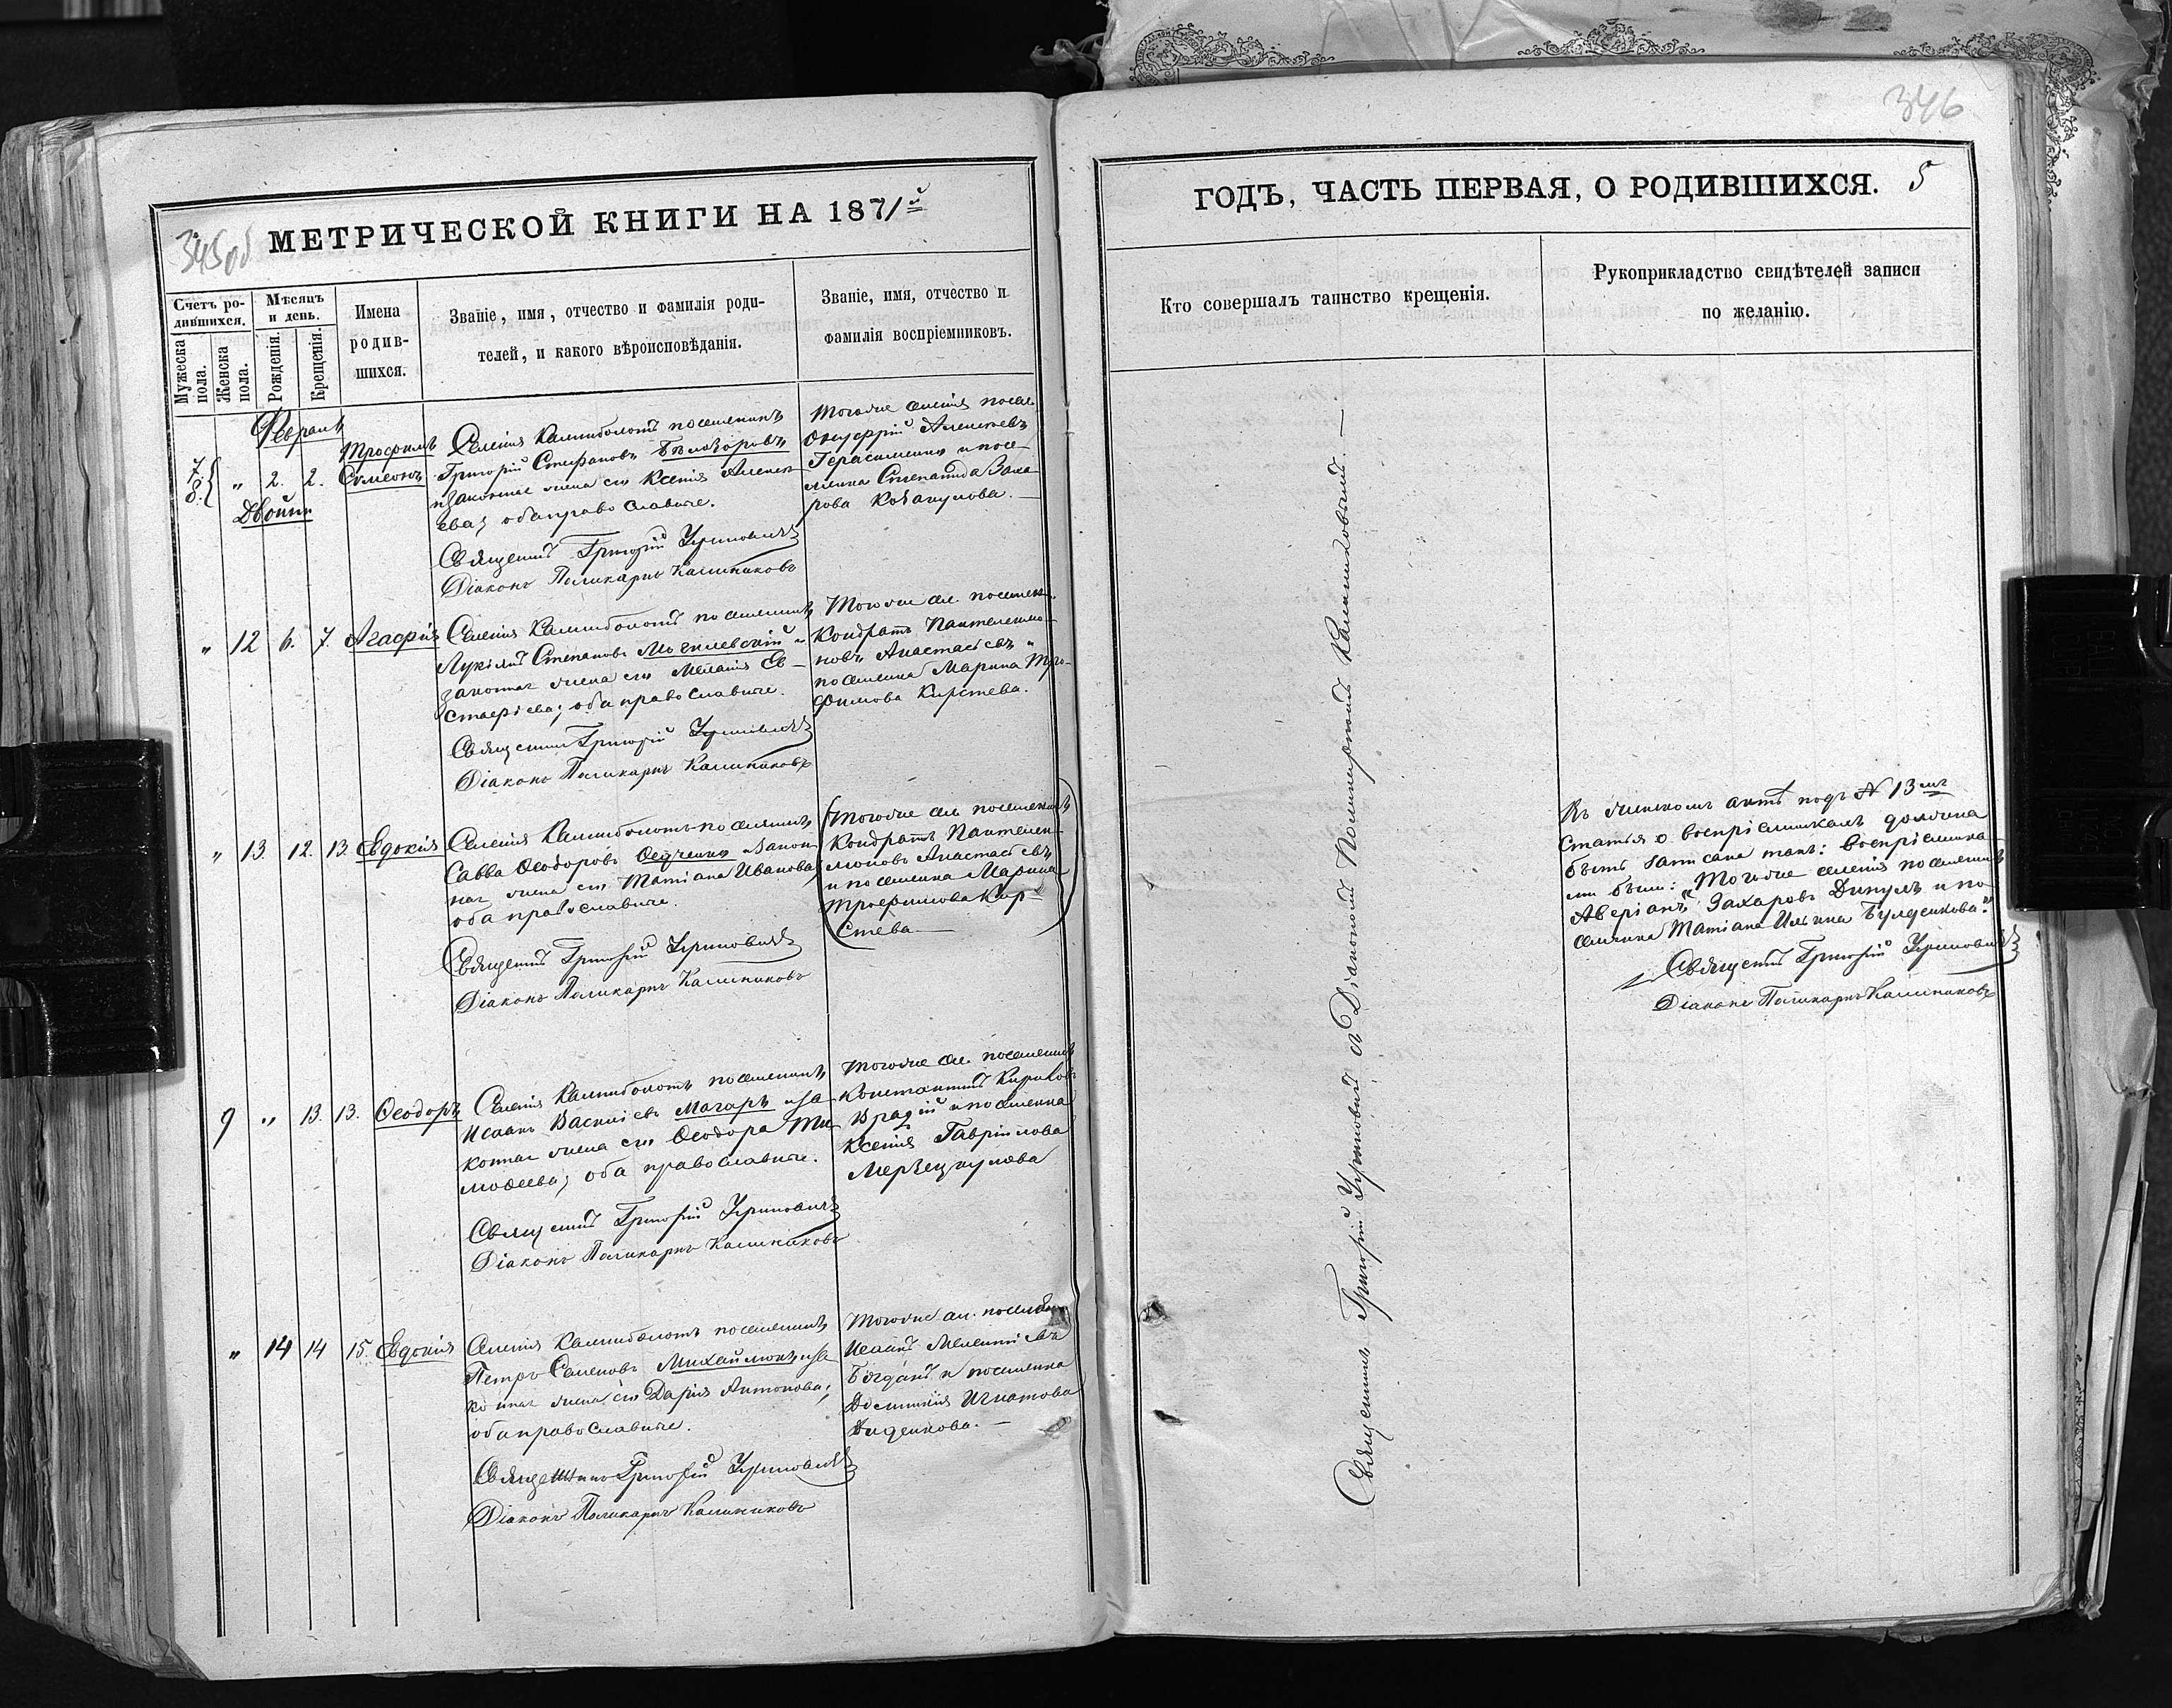 345об
МЕТРИЧЕСКОЙ КНИГИ НА 1871й
Счетъ ро-
дившихся.
Мужеска пола.
Женска пола.
Мѣсяцъ
и день.
Рожденія.
Крещенія.
Имена
родив-
шихся.
Званіе, имя, отчество и фамилія роди-
телей, и какого вѣроисповѣданія.
Званіе, имя, отчество и
фамилія воспріемниковъ.
Февраль
7
8
"
2.
2.
Двойни
Трофимъ
Сѵмеонъ
Селенія Калниболотъ поселянинъ
Григорій Стефановъ Бѣлозоровъ
и законная жена его Ксенія Алексе-
ева; оба православные.
Священникъ Григорій
Діаконъ Поликарпъ Калиниковъ
Тогоже селенія посел.
Онуфрій Алексѣевъ
Герасименко и посе-
лянка Степанида Заха-
рова
"
12
6.
7.
Агафія
Селенія Калниболотъ поселянинъ
Лукіянъ Степановъ Могилевскій и
законная жена его Меланія Ев-
стафіева; оба православные.
Священникъ Григорій
Діаконъ Поликарпъ Калиниковъ
Тогоже сел. поселян.
Кондратъ Пантелеимо-
новъ Анастасьевъ и
поселянка Марина Тро-
фимова Кирстева.
"
13.
12.
13.
Евдокія
Селенія Калниболотъ поселянинъ
Савва Ѳеодоровъ и закон-
ная жена его Татіана Иванова;
оба православные.
Священникъ Григорій
Діаконъ Поликарпъ Калиниковъ
Тогоже сел. поселянинъ
Кондратъ Пантелеи-
моновъ Анастасьевъ
и поселянка Марина
Трофимова Кир-
стева
9
"
13.
13.
Ѳеодоръ
Селенія Калниболотъ поселянинъ
Исаакъ Василіевъ Магаръ и за-
конная жена его Ѳеодора Ти-
моѳеева; оба православные.
Священникъ Григорій
Діаконъ Поликарпъ Калиниковъ
Тогоже сел. поселянинъ
Константинъ Кириловъ
Врадій и поселянка
Ксенія Гавріилова
"
14
14
15.
Евдокія
Селенія Калниболотъ поселянинъ
Петръ Семеновъ Михайлюкъ и за-
конная жена его Дарія Антонова;
оба православные.
Священникъ Григорій
Діаконъ Поликарпъ Калиниковъ
Тогоже сел. поселян.
Иоаннъ Мелентіевъ
Богданъ и поселянка
Домникія Игнатова
Диденкова.
346
ГОДЪ, ЧАСТЬ ПЕРВАЯ, О РОДИВШИХСЯ. 5
Кто совершалъ таинство крещенія.
Рукоприкладство свидѣтелей записи
по желанію.
Священникъ Григорій съ Діакономъ Поликарпомъ Калиниковымъ.
Въ женскомъ актѣ подъ № 13мъ
статья о воспріемникахъ должна
быть записана такъ: воспріемника-
ми были: „Тогоже селенія поселянинъ
Аверіанъ Захаровъ и по-
селянка Татіана Ильина
Священникъ Григорій
Діаконъ Поликарпъ Калиниковъ